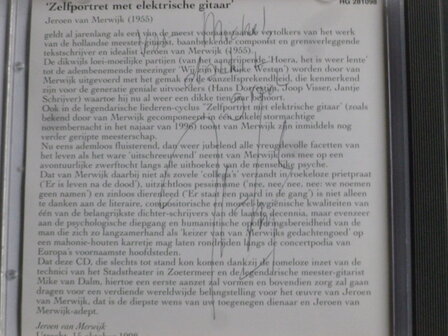 'Zelfportret met elektrische gitaar'
HG 281098
Jeroen van Merwijk (1955)
geldt al jarenlang als een van de meest vooraanstaande vertolkers van het werk
van de hollandse meester, baanbrekend componist en grensverleggende
tekstschrijver en idealist Jeroen van Merwijk (1955).
De dikwijls loei-moeilijke partijen (van het aanstijgende 'Hoera, het is weer lente'
tot de adembenemende meezinger 'Wij zijn het Rijke Westen') worden door van
Merwijk uitgevoerd met het gemak en de vanzelfsprekendheid, die kenmerkend
zijn voor de generatie geniale uitvoerders (Hans Dorrestijn, Joop Visser, Jantje
Schrijver) waartoe hij nu al weer een dikke tien jaar behoort.
Ook in de legendarische liederen-cyclus "Zelfportret met elektrische gitaar' (zoals
bekend door van Merwijk gecomponeerd in één enkele stormachtige
novembernacht in het najaar van 1996) toont van Merwijk zijn inmiddels nog
verder gerijpte meesterschap.
Nu eens ademloos fluisterend, dan weer jubelend alle vreugdevolle facetten van
het leven als het ware 'uitschreeuwend' neemt van Merwijk ons mee op een
avontuurlijke zwerftocht langs alle uithoeken van de menselijke psyche.
Dat van Merwijk daarbij niet als zovele 'collega's' verzandt in roekeloze prietpraat
('Er is leven na de dood'), uitzichtloos pessimisme ('nee, nee, nee, nee: we noemen
geen namen') en zinloos dierenleed ('Er staat een paard in de gang') is niet alleen
te danken aan de literaire, compositorische en mondhygiënische kwaliteiten van
één van de belangrijkste dichter-schrijvers van de laatste decennia, maar evenzeer
aan de psychologische diepgang en humanistische opofferingsbereidheid van de
man die zich zo langzamerhand als 'keizer van van Merwijks gedachtengoed' op
een mahonie-houten karretje mag laten rondrijden langs de concertpodia van
Europa's voornaamste hoofdsteden.
Dat deze CD, die slechts tot stand kon komen dankzij de tomeloze inzet van de
technici van het Stadstheater in Zoetermeer en de legendarische meester-gitarist
Mike van Dalm, hiertoe een eerste aanzet zal vormen en bovendien zorg zal gaan
dragen voor een verdiende wereldwijde belangstelling voor het œuvre van Jeroen
van Merwijk, dat is de diepste wens van uw toegenegen dienaar en Jeroen van
Merwijk-adept.
Jeroen van Merwijk
Utrecht, 15 oktober 1998